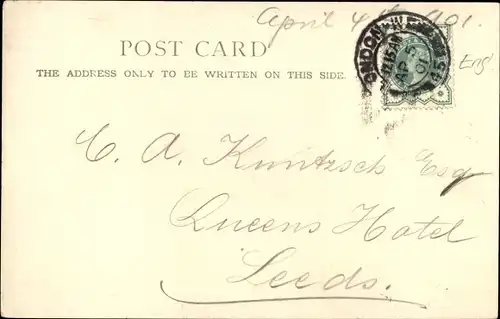 April 4th 1901.
POST CARD
THE ADDRESS ONLY TO BE WRITTEN ON THIS SIDE.
LONDON
AP 5
01
45
Engl
C. A. Kuntzsch Esq
Queens Hotel
Leeds.